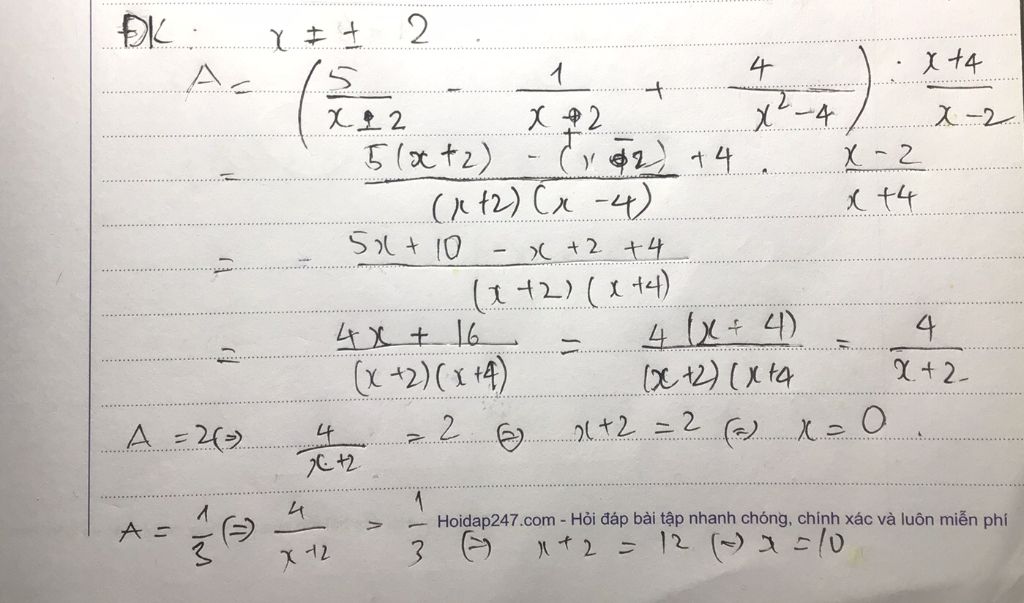 ĐK: x ≠ ± 2.
A = (5/(x - 2) - 1/(x + 2) + 4/(x² - 4)) : (x + 4)/(x - 2)
= (5(x + 2) - (x - 2) + 4)/((x + 2)(x - 4)) . (x - 2)/(x + 4)
= (5x + 10 - x + 2 + 4)/((x + 2)(x + 4))
= (4x + 16)/((x + 2)(x + 4)) = 4(x + 4)/((x + 2)(x + 4 = 4/(x + 2)
A = 2 (=) 4/(x + 2) = 2 (=) x + 2 = 2 (=) x = 0.
A = 1/3 (=) 4/(x + 2) = 1/3 (=) x + 2 = 12 (=) x = 10
Hoidap247.com - Hỏi đáp bài tập nhanh chóng, chính xác và luôn miễn phí